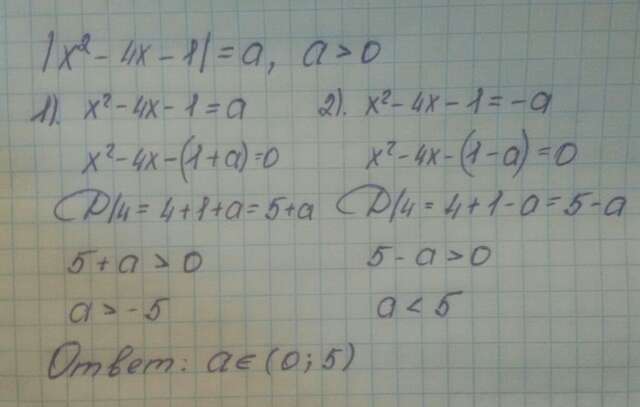 |x² - 4x - 1| = a, a > 0
1). x² - 4x - 1 = a 2). x² - 4x - 1 = -a
x² - 4x - (1 + a) = 0 x² - 4x - (1 - a) = 0
D/4 = 4 + 1 + a = 5 + a D/4 = 4 + 1 - a = 5 - a
5 + a > 0 5 - a > 0
a > -5 a < 5
Ответ: a ∈ (0; 5)